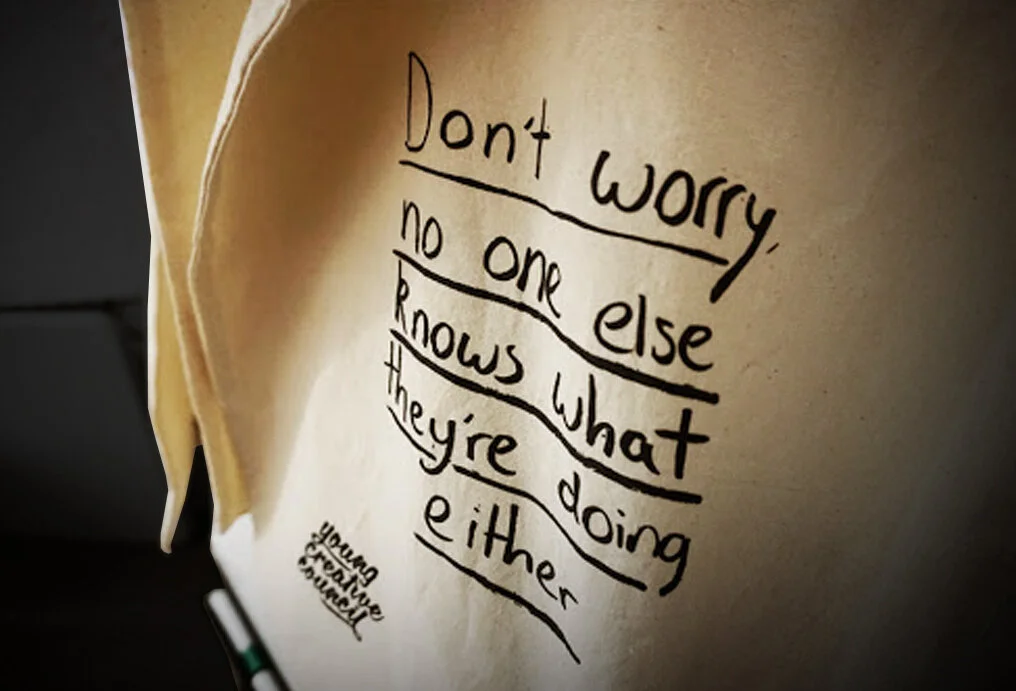 Don't worry,
no one else
knows what
they're doing
either
young
creative
council